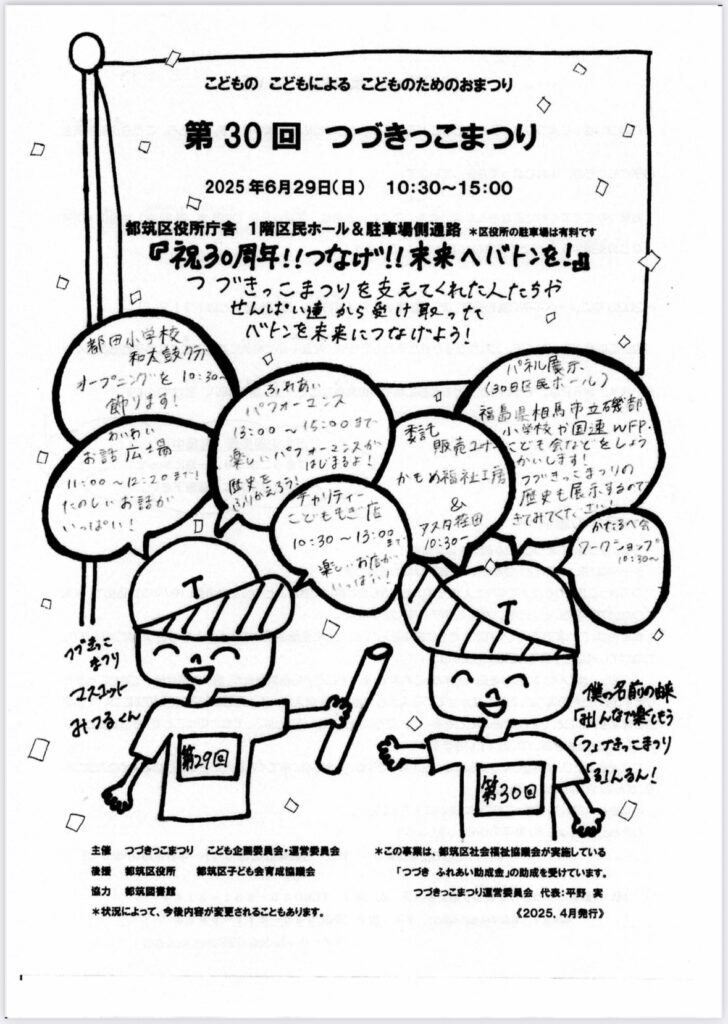 こどもの こどもによる こどものためのおまつり
第30回 つづきっこまつり
2025年6月29日(日) 10:30～15:00
都筑区役所庁舎 1階区民ホール＆駐車場側通路 ＊区役所の駐車場は有料です
『祝30周年!!つなげ!!未来へバトンを!』
つづきっこまつりを支えてくれた人たちや
せんぱい達から受け取って
バトンを未来につなげよう!
都田小学校
和太鼓クラブ
オープニングを10:30～
飾ります!
わいわい
お話広場
11:00～12:20まで!
たのしいお話が
いっぱい!
ふれあい
パフォーマンス
13:00～15:00まで
楽しいパフォーマンスが
はじまるよ!
歴史を
ふりかえろう!
チャリティー
こどももぎ店
10:30～13:00まで
楽しいお店が
いっぱい!
委託
販売コーナー
かもめ福祉工房
&
アスタ荏田
10:30～
パネル展示
(30日区民ホール)
福島県相馬市立磯部
小学校や国連WFP.
こども会などをしょう
かいします!
つづきっこまつりの
歴史も展示するので
きてみてください!
かたるべ会
ワークショップ
10:30～
T
T
つづきっこ
まつり
マスコット
みつるくん
第29回
第30回
僕の名前の由来
「み」んなで楽しもう
「つ」づきっこまつり
「る」んるん!
主催 つづきっこまつり こども企画委員会・運営委員会
後援 都筑区役所 都筑区子ども会育成協議会
協力 都筑図書館
＊状況によって、今後内容が変更されることもあります。
＊この事業は、都筑区社会福祉協議会が実施している
「つづき ふれあい助成金」の助成を受けています。
つづきっこまつり運営委員会 代表:平野 実
《2025.4月発行》